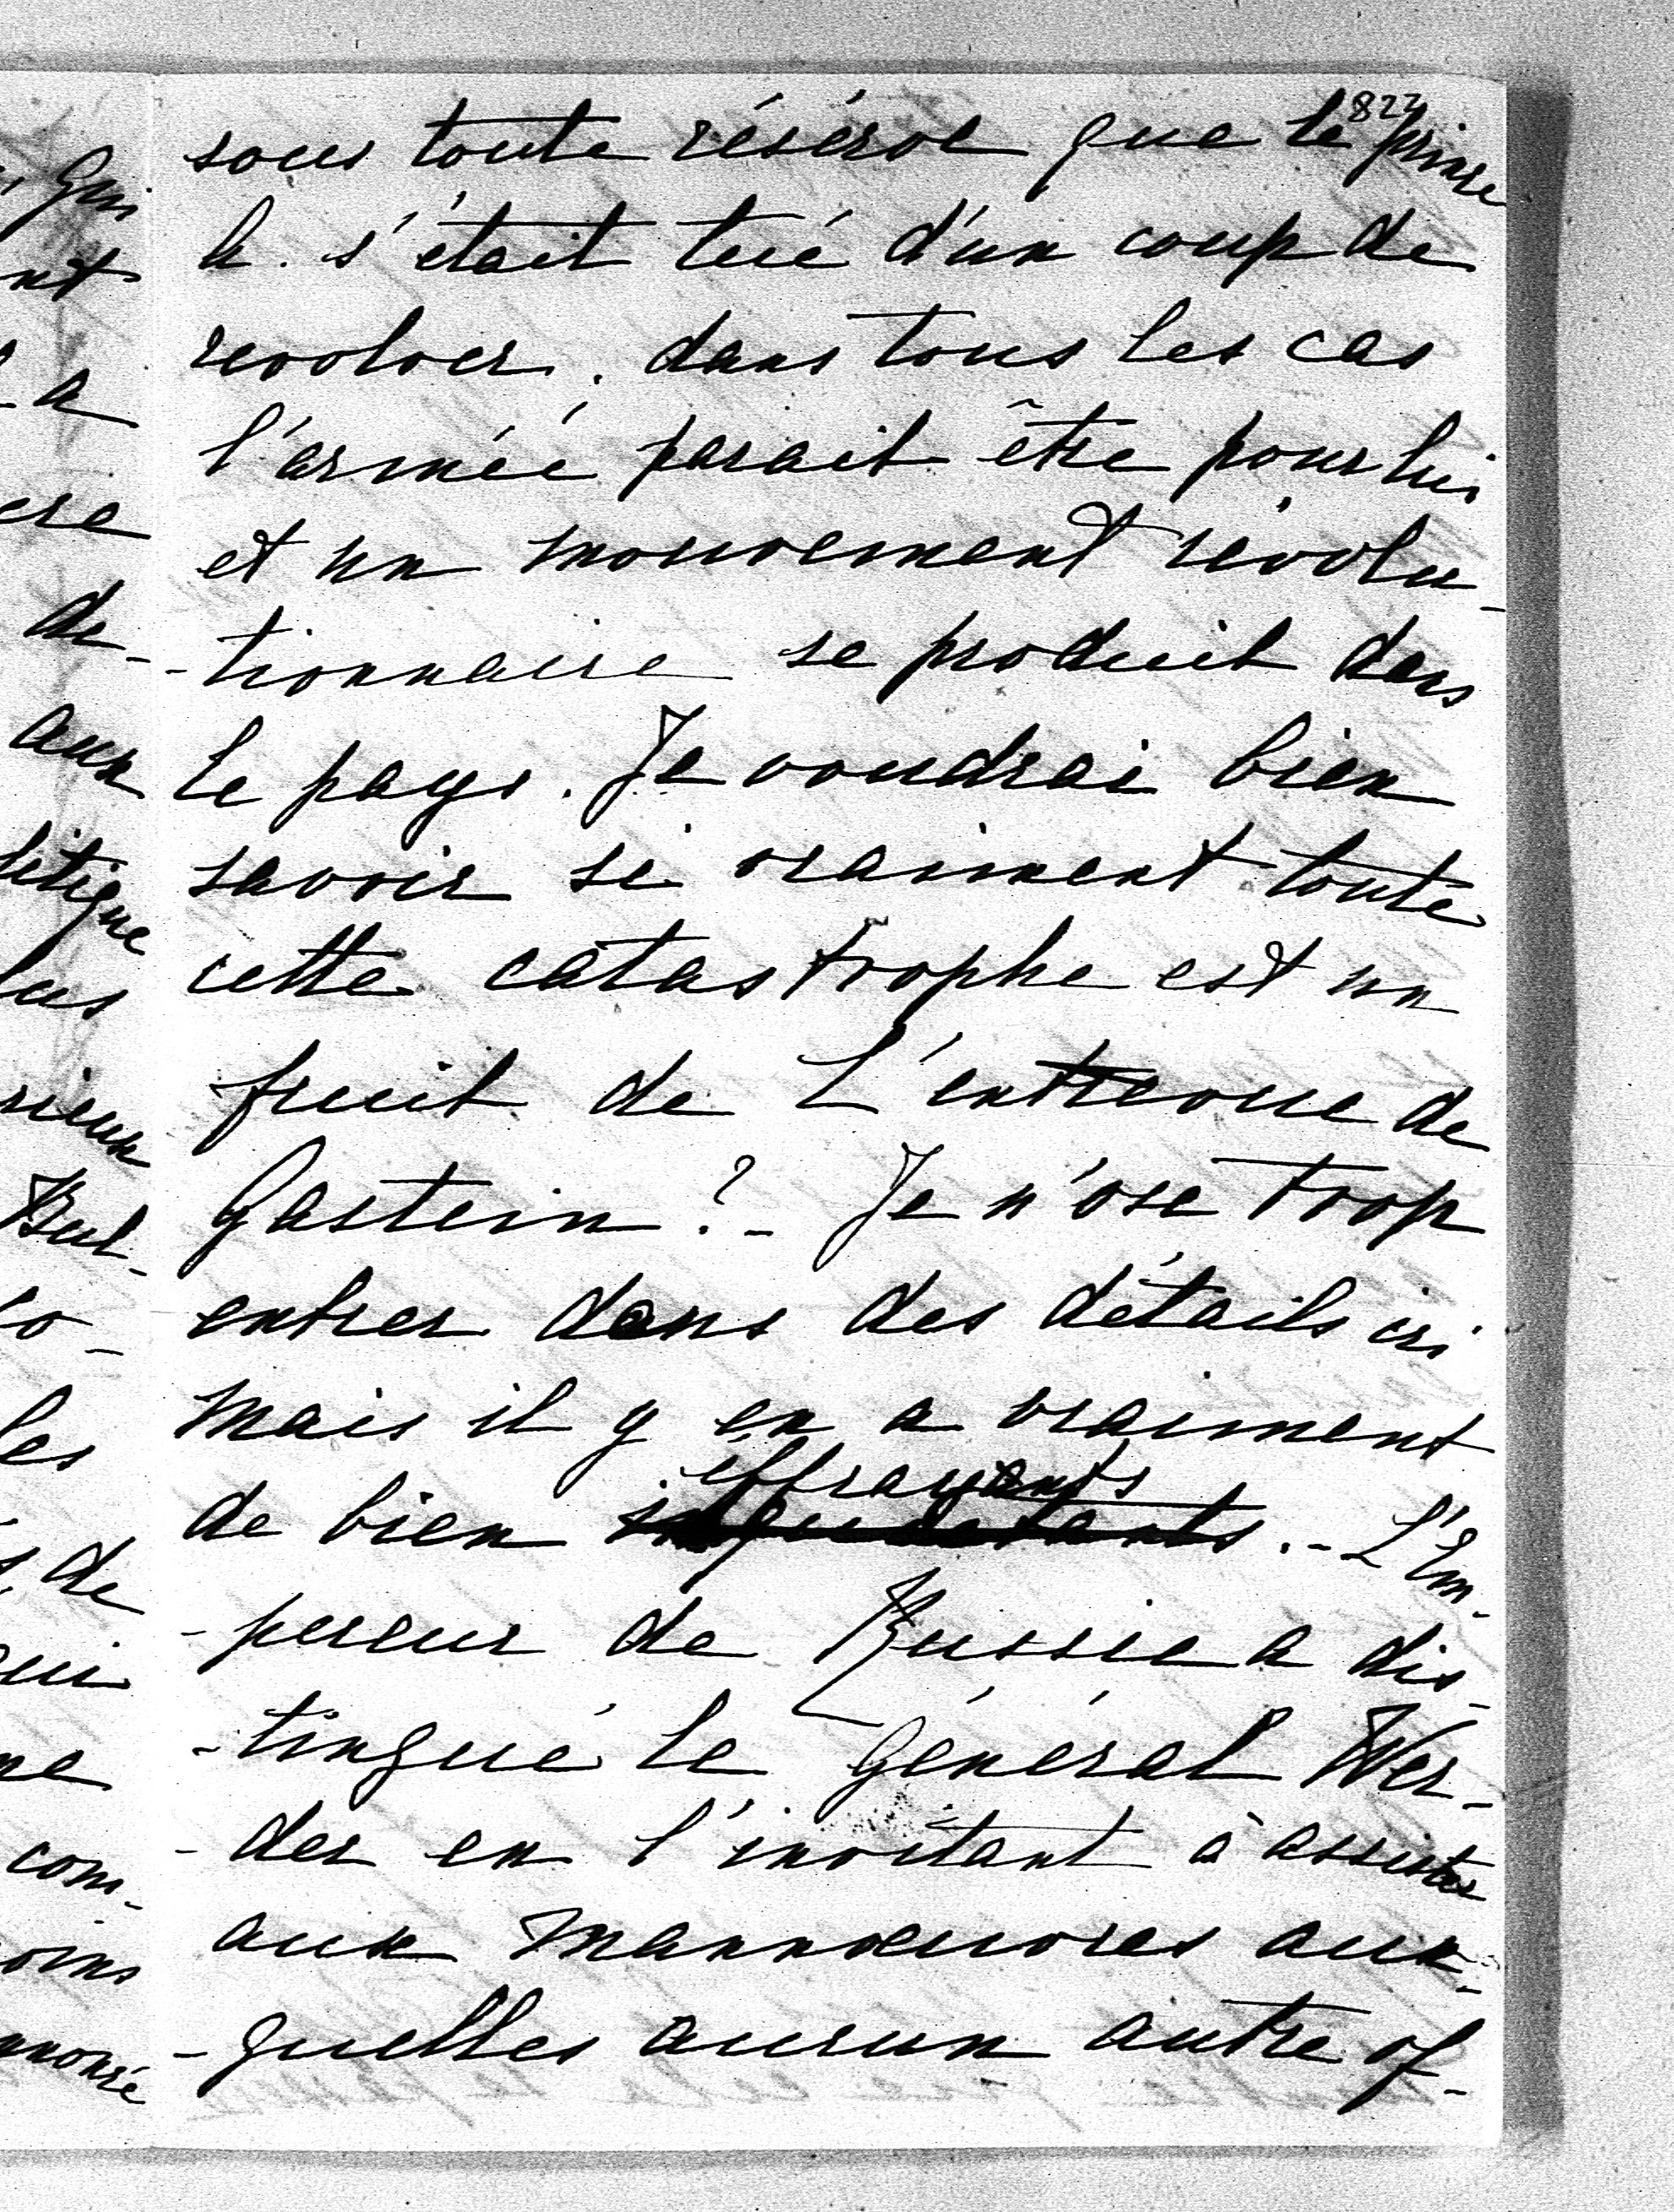 822
sous toute réserve que le prince
A. s'était tué d'un coup de
revolver. dans tous les cas
l'armée parait être pour lui
et un mouvement révolu-
-tionnaire se produit dans
le pays. Je voudrai bien
savoir si vraiment toute
cette catastrophe est un
fruit de L'entrevue de
Gastein?- Je n'ose trop
entrer dans des détails ici
mais il y en a vraiment
effrayants
de bien inquietants.- L'Em-
-pereur de Russie a dis-
-tingué le Général Wer-
-der en l'invitant à assister
aux mannoeuvres aux-
-quelles aucun autre of-